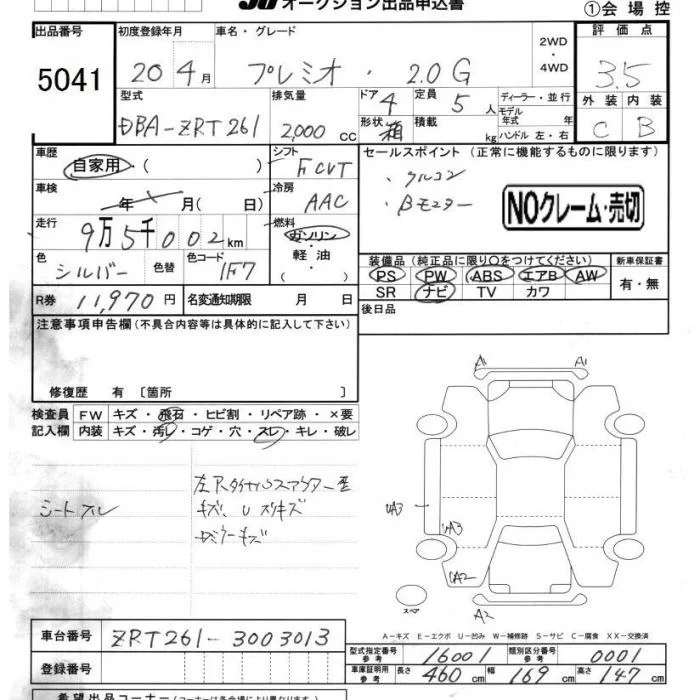 JU オークション出品申込書
①会場控
出品番号
5041
初度登録年月
20 4月
車名・グレード
プレミオ・2.0G
2WD・4WD
評価点
3.5
外装 内装
C B
型式
DBA-ZRT261
排気量
2,000 CC
ドア 4
形状 箱
定員 5人
積載 kg
ディーラー・並行
モデル年式 年
ハンドル 左・右
車歴
自家用・( )
シフト
FCVT
セールスポイント (正常に機能するものに限ります)
・クルコン
・Bモニター
NOクレーム・売切
車検
年 月(日)
冷房
AAC
走行
9万5千002km
燃料
ガソリン・軽油・( )
色
シルバー
色替
色コード
1F7
装備品 (純正品に限り○をつけてください)
PS PW ABS エアB AW
SR ナビ TV カワ
新車保証書
有・無
R券 11,970円
名変通知期限 月 日
後日品
注意事項申告欄 (不具合内容等は具体的に記入して下さい)
修復歴 有 〔箇所 〕
検査員記入欄
FW キズ・飛石・ヒビ割・リペア跡・×要
内装 キズ・汚レ・コゲ・穴・スレ・キレ・破レ
シートスレ
キズ、Uスリキズ
A1 A1
UA3
UA3
UA2
A2
スペア
A-キズ E-エクボ U-凹み W-補修跡 S-サビ C-腐食 XX-交換済
車台番号
ZRT261-3003013
型式指定番号 参考 16001
類別区分番号 参考 0001
登録番号
車庫証明用 参考 長さ 460cm 幅 169cm 高さ 147cm
希望出品コーナー